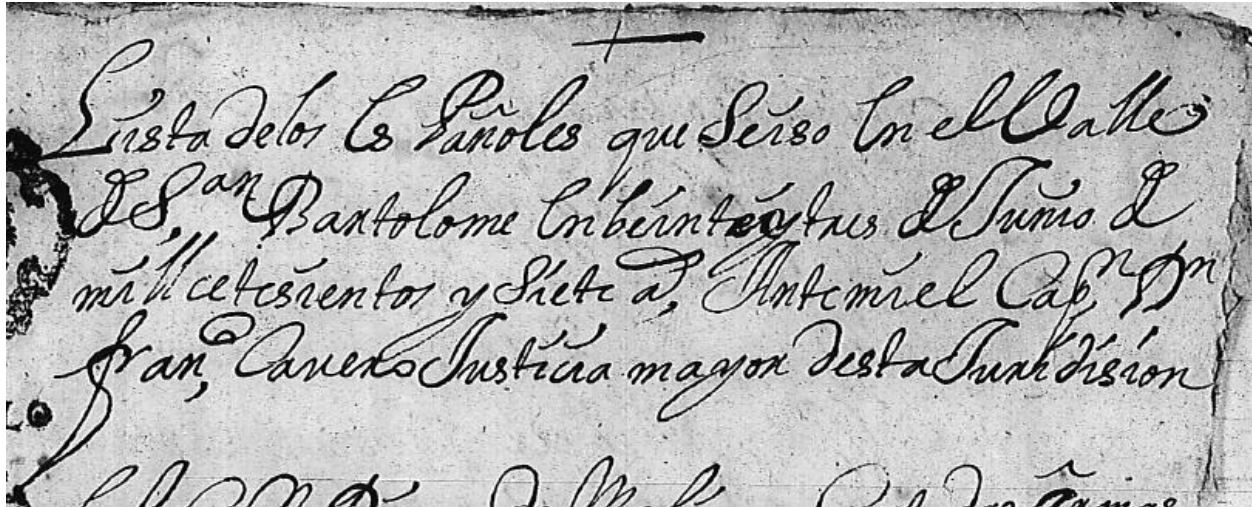 Lista delos es Pañoles que Seiso En el Valle
de S.an Bartolome En beinte y tres de Junio de
mill cetesientos y siete a.s Ante mi el Cap.n D.n
fran.co Cavero Justicia mayor desta Juridision